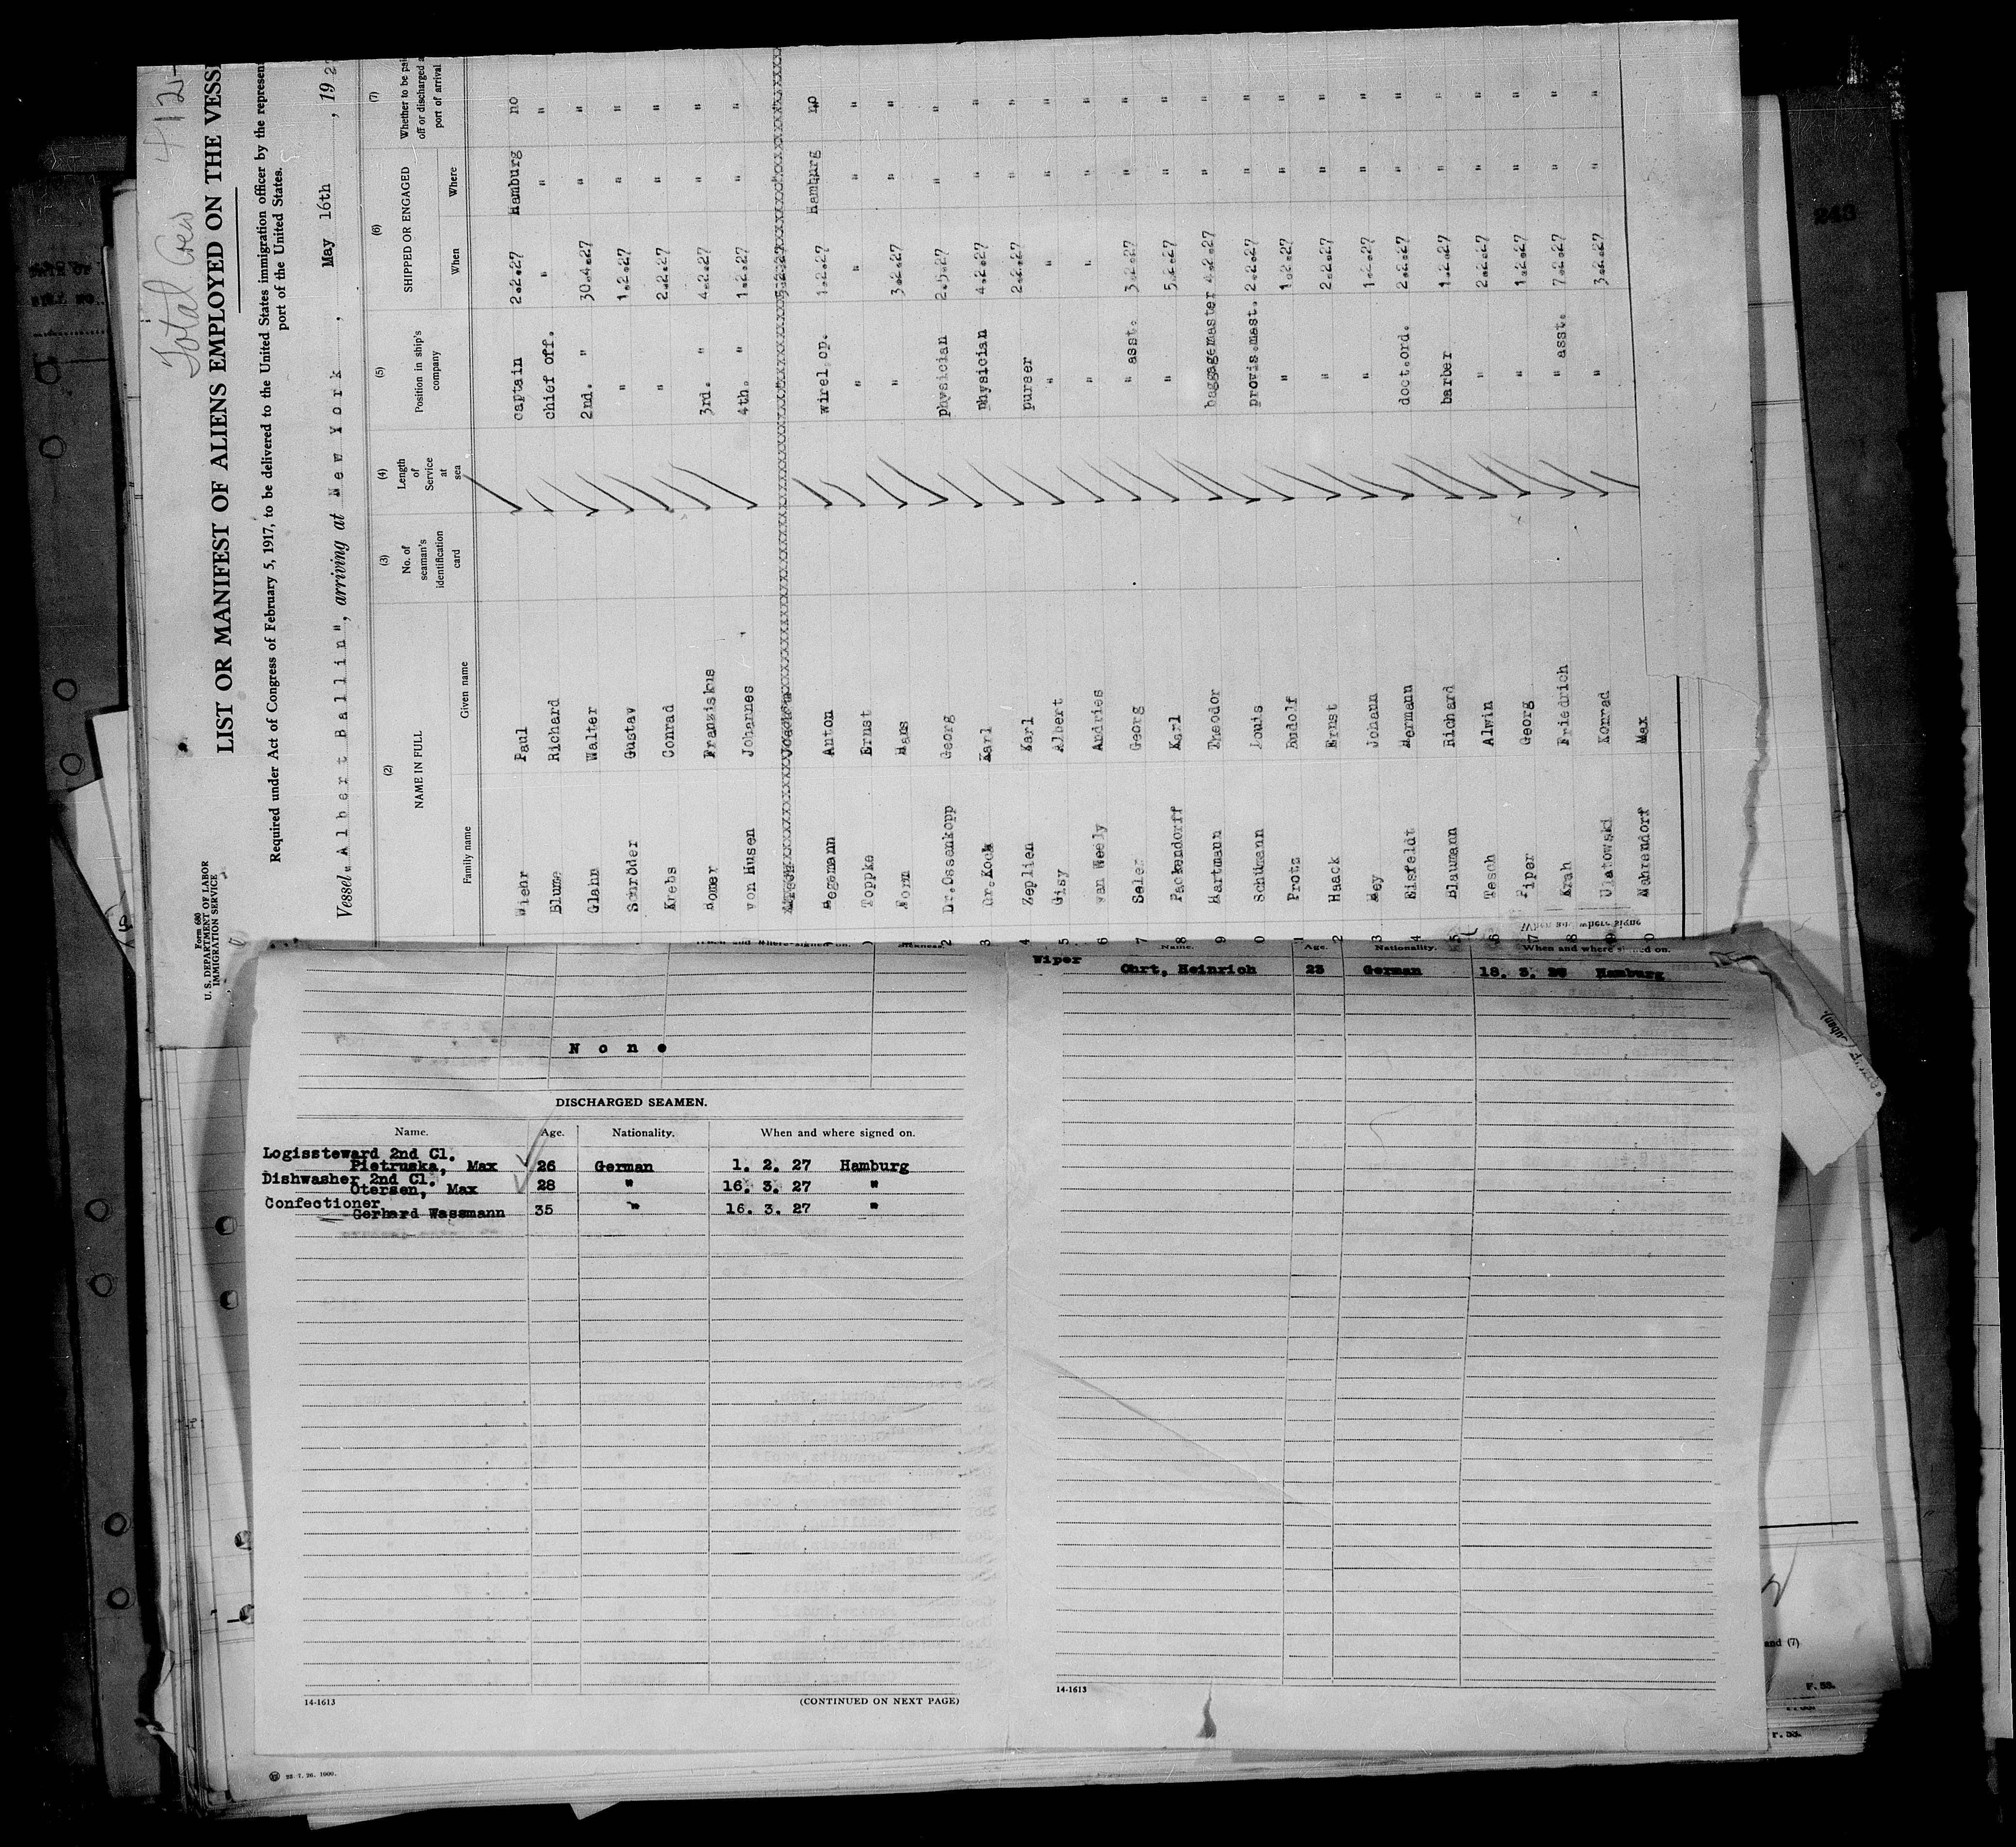 Total Crew 412
Form 680
U. S. DEPARTMENT OF LABOR
IMMIGRATION SERVICE
LIST OR MANIFEST OF ALIENS EMPLOYED ON THE VESS
Required under Act of Congress of February 5, 1917, to be delivered to the United States immigration officer by the represen
port of the United States.
Vessel "Albert Ballin", arriving at New York, May 16th, 192
(2) (3) (4) (5) (6) (7)
NAME IN FULL No. of seaman's identification card Length of Service at sea Position in ship's company SHIPPED OR ENGAGED Whether to be pai off or discharged a port of arrival
Family name Given name When Where
Wiehr Paul captain 2.2.27 Hamburg no
Blume Richard chief off. " " "
Glahn Walter 2nd. " 30.4.27 " "
Schröder Gustav " 1.2.27 " "
Krebs Conrad " 2.2.27 " "
Romer Franziskus 3rd. " 4.2.27 " "
von Husen Johannes 4th. " 1.2.27 " "
Hegemann Anton wirel.op. 1.2.27 Hamburg no
Toppke Ernst " " " "
Form Hans " 3.2.27 " "
2 Dr.Ossenkopp Georg physician 2.5.27 " "
3 Dr.Kock Karl physician 4.2.27 " "
4 Zeplien Karl purser 2.2.27 " "
5 Gisy Albert " " " "
6 van Weely Andries " " " "
7 Seler Georg " asst. 3.2.27 " "
8 Packendorff Karl " 5.2.27 " "
9 Hartmann Theodor baggagemaster 4.2.27 " "
0 Schümann Louis provis.mast. 2.2.27 " "
1 Protz Rudolf " 1.2.27 " "
2 Haack Ernst " 2.2.27 " "
3 Hey Johann " 1.2.27 " "
4 Eisfeldt Hermann doct.ord. 2.2.27 " "
5 Blaumann Richard barber 1.2.27 " "
6 Tesch Alwin " 2.2.27 " "
7 Piper Georg " 1.2.27 " "
8 Krah Friedrich " asst. 7.2.27 " "
9 Ulatowski Konrad " 3.2.27 " "
0 Mahrendorf Max
None
DISCHARGED SEAMEN.
Name. Age. Nationality. When and where signed on.
Logissteward 2nd Cl.
Pietruska, Max 26 German 1. 2. 27 Hamburg
Dishwasher 2nd Cl.
Otersen, Max 28 " 16. 3. 27 "
Confectioner
Gerhard Wassmann 35 " 16. 3. 27 "
14-1613 (CONTINUED ON NEXT PAGE)
Name. Age. Nationality. When and where signed on.
Wiper
Ohrt, Heinrich 23 German 18. 3. 26 Hamburg
14-1613
22. 7. 26. 1000.
243
and (7)
F. 53.
F. 53.